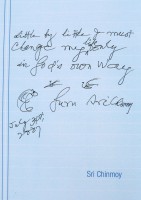 Little by little I must
change my body
in God's own Way
July 31st,
2007
Sri Chinmoy